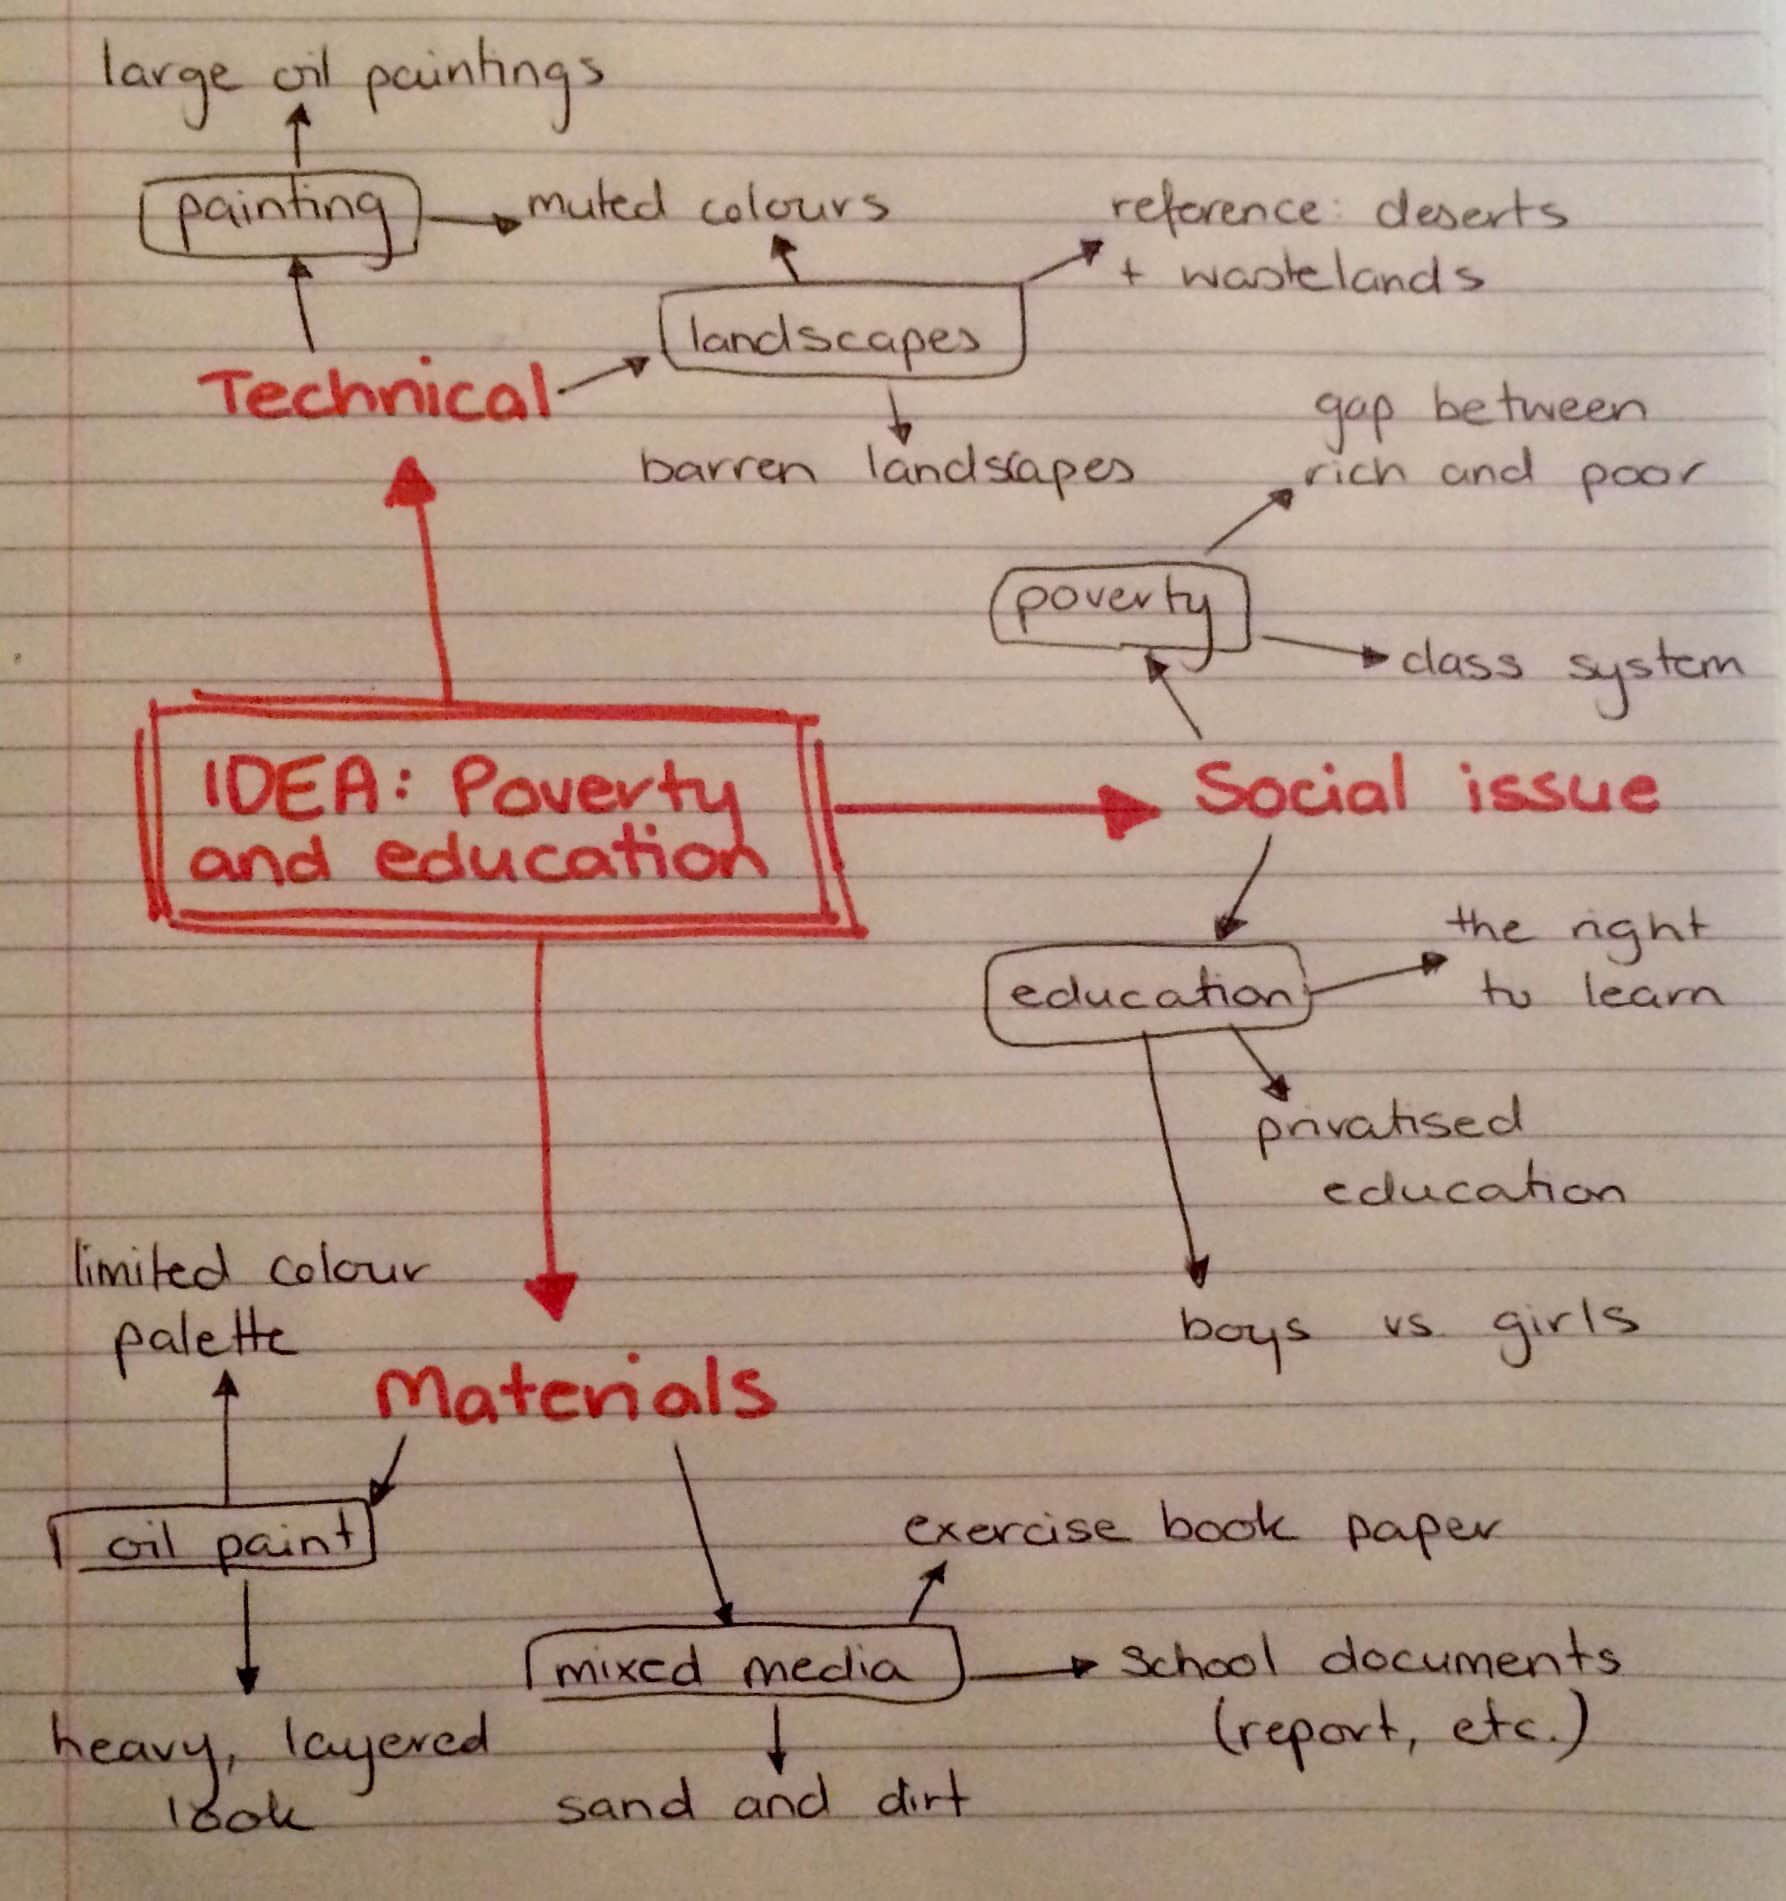 large oil paintings
painting
muted colours
reference: deserts
+ wastelands
landscapes
Technical
barren landscapes
gap between
rich and poor
poverty
class system
IDEA: Poverty
and education
Social issue
the right
to learn
education
privatised
education
boys vs. girls
limited colour
palette
Materials
oil paint
heavy, layered
look
exercise book paper
mixed media
school documents
(report, etc.)
sand and dirt